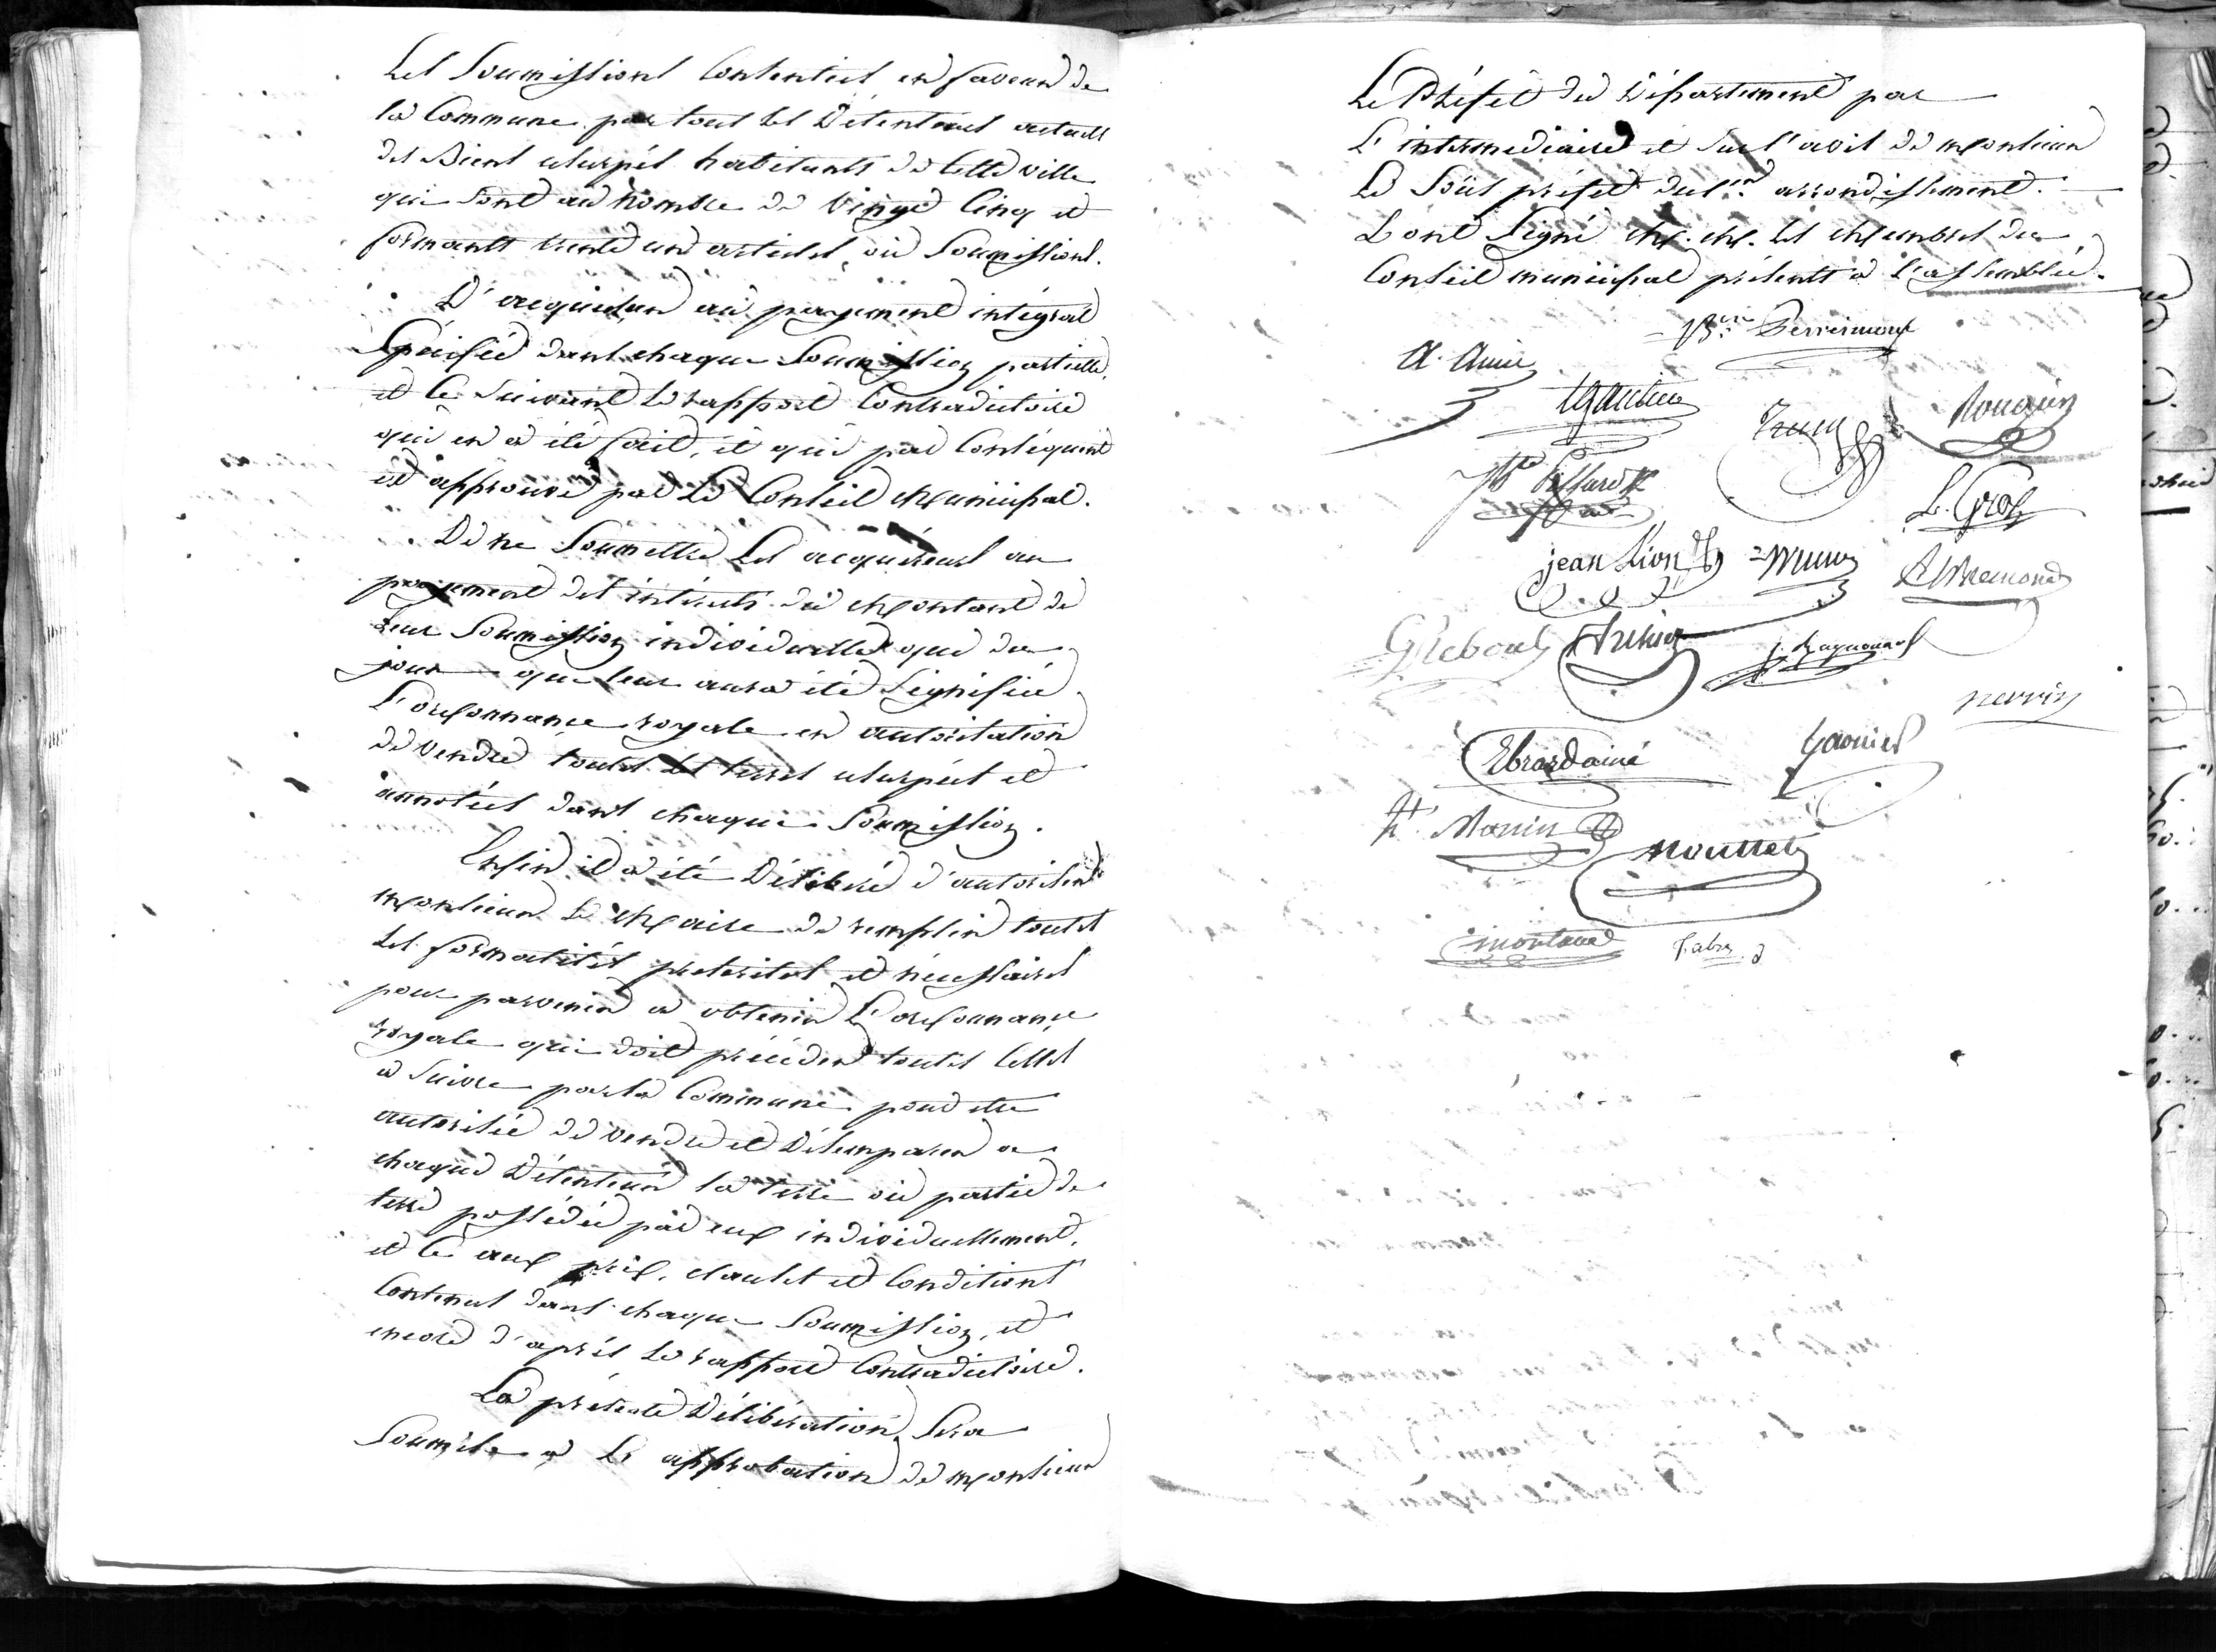 Les Soumissions Consenties en faveur de
la Commune par tous les Détenteurs actuels
des Biens usurpés habitants de cette ville
qui sont au nombre de vingt cinq et
formants trente un articles, ou Soumissions.
D'acquiescer au payement intégral
Spécifié dans chaque Soumission partielle,
et ce suivant le rapport Contradictoire
qui en a été fait, et qui par Conséquent
est approuvé par le Conseil Municipal.
De ne Soumettre les acquéreurs au
payement des intérêts du Montant de
leur Soumission individuelle que du
jour que leur aura été Signifiée
L'ordonnance royale en autorisation
de vendre toutes les terres usurpées et
annotées dans chaque Soumission.
Enfin il a été Délibéré d'autoriser
Monsieur le Maire de remplir toutes
les formalités prescrites et nécessaires
pour parvenir à obtenir L'ordonnance
royale qui doit précéder toutes celles
à Suivre par la Commune pour être
autorisée de vendre et Désemparer a
chaque Détenteur la terre ou partie de
terre possédée par eux individuellement,
et ce aux prix, clauses et Conditions
Contenus dans chaque Soumission, et
encore d'après le rapport Contradictoire.
La présente Délibération Sera
Soumise à L'approbation de Monsieur
Le Préfet du Département par
L'intermédiaire et sur l'avis de Monsieur
Le Sous préfet du 1.er arrondissement.
L'ont Signé M.M. les Membres du
Conseil municipal présents à l'assemblée.
Perreimond
A. Amic
Gautier
Truc
Rouquier
L. Gros
jean Lion
AHremond
G Reboul
Perrin
Ebrard ainé
Garnier
H. Manin
Mouttet
Montaud
Fabre